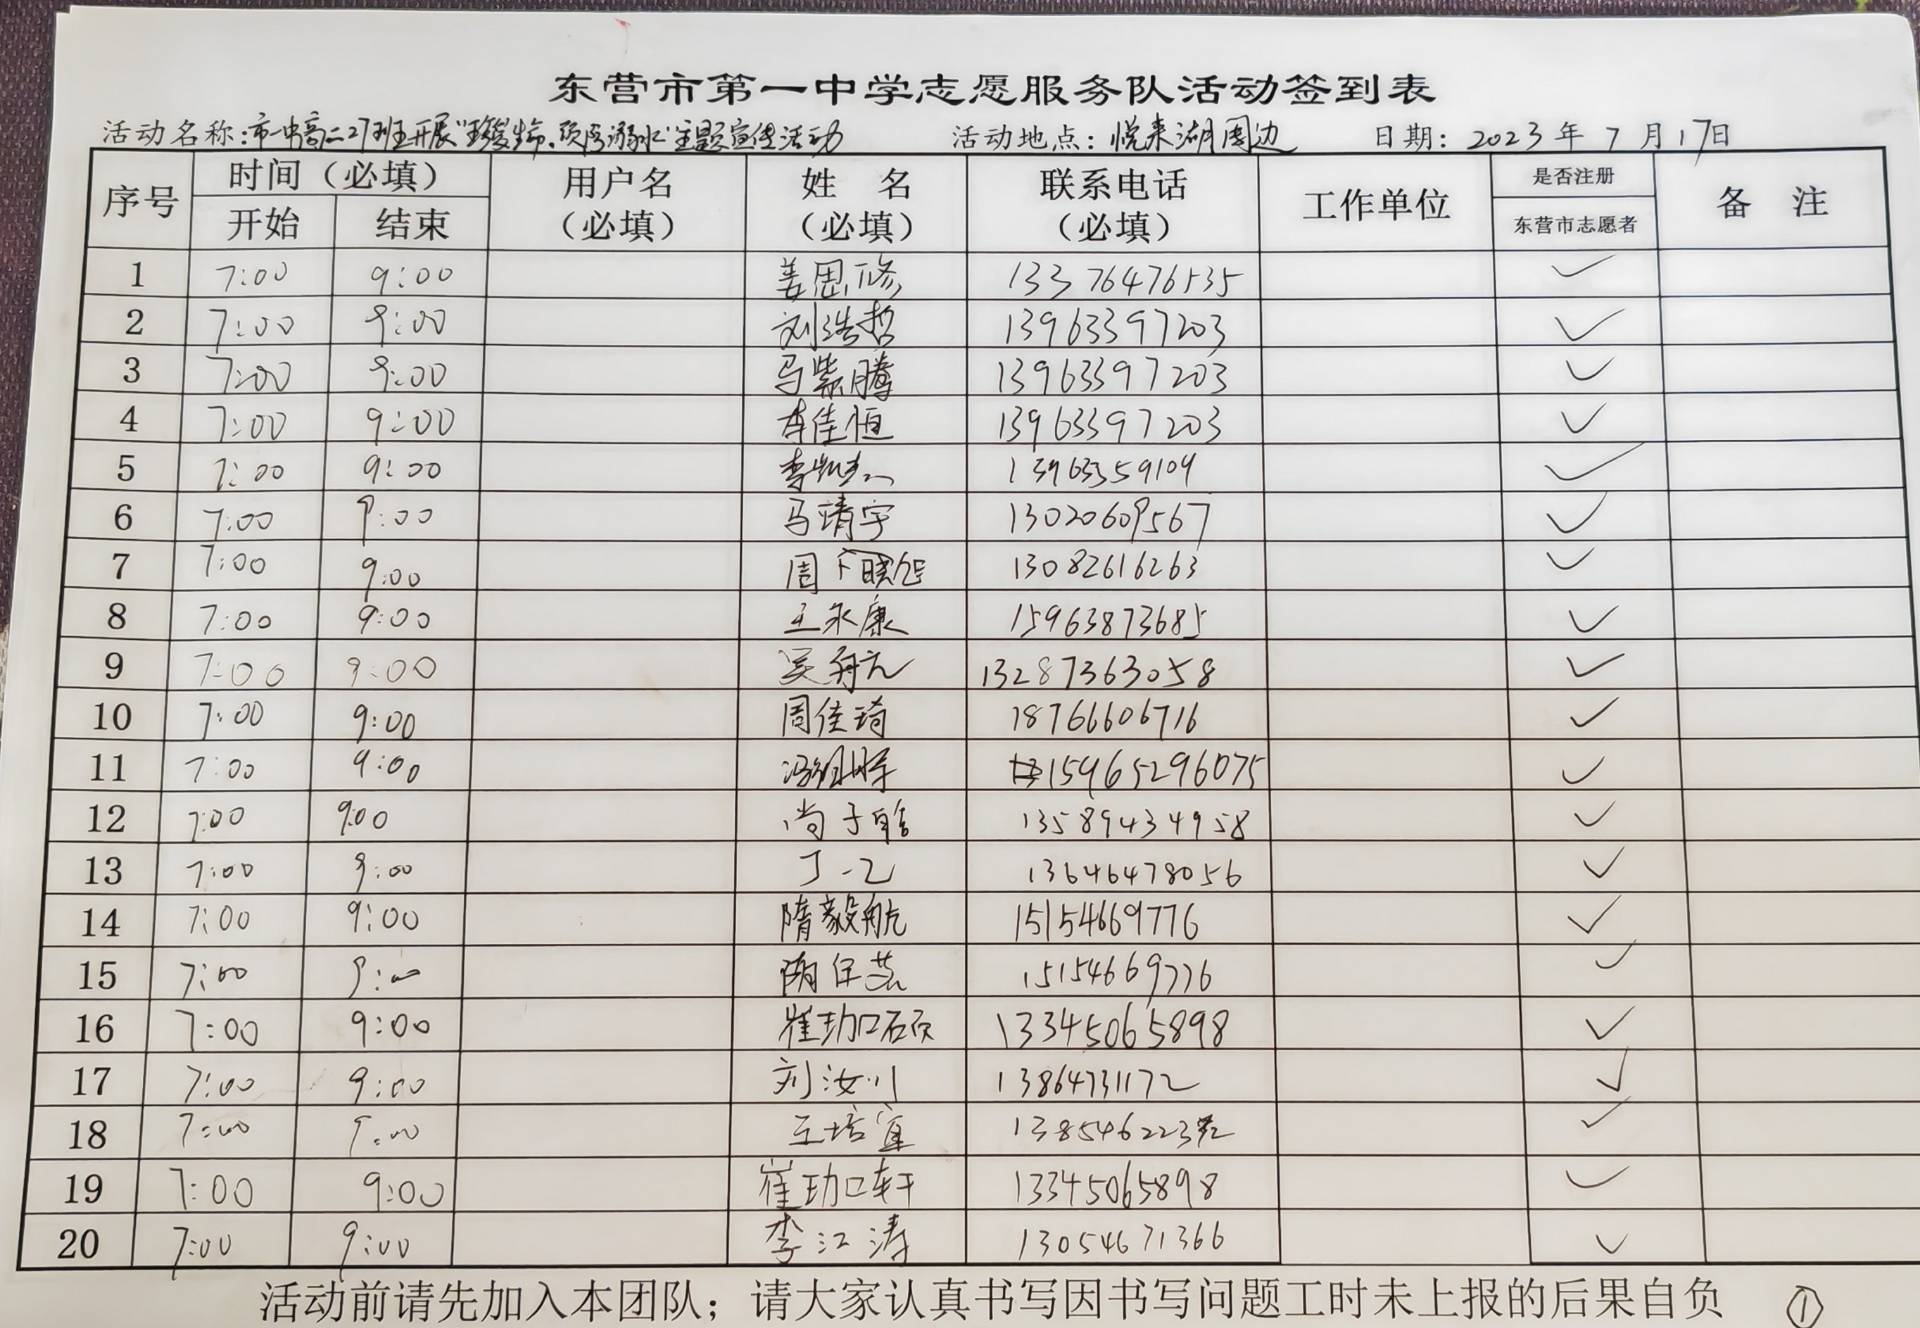 东营市第一中学志愿服务队活动签到表
活动名称：市一中高二27班开展“珍爱生命、预防溺水”主题宣传活动 活动地点：悦来湖周边 日期：2023年7月17日
序号 时间（必填） 用户名（必填） 姓名（必填） 联系电话（必填） 工作单位 是否注册 备注
开始 结束 东营市志愿者
1 7:00 9:00 姜思修 13376476535 ✓
2 7:00 9:00 刘浩哲 13963397203 ✓
3 7:00 9:00 马紫腾 13963397203 ✓
4 7:00 9:00 佳恒 13963397203 ✓
5 7:00 9:00 李 13963359109 ✓
6 7:00 9:00 马靖宇 13020609567 ✓
7 7:00 9:00 周 13082616263 ✓
8 7:00 9:00 王永康 15963873685 ✓
9 7:00 9:00 吴舟元 13287363058 ✓
10 7:00 9:00 周佳琦 18766606716 ✓
11 7:00 9:00 冯 15965296075 ✓
12 7:00 9:00 尚子皓 13589434958 ✓
13 7:00 9:00 丁一乙 13646478056 ✓
14 7:00 9:00 隋毅航 15154669776 ✓
15 7:00 9:00 隋 15154669776 ✓
16 7:00 9:00 崔硕 13345065898 ✓
17 7:00 9:00 刘汝川 13864731172 ✓
18 7:00 9:00 王培宜 ✓
19 7:00 9:00 崔轩 13345065898 ✓
20 7:00 9:00 李江涛 13054671366 ✓
活动前请先加入本团队；请大家认真书写因书写问题工时未上报的后果自负 ①